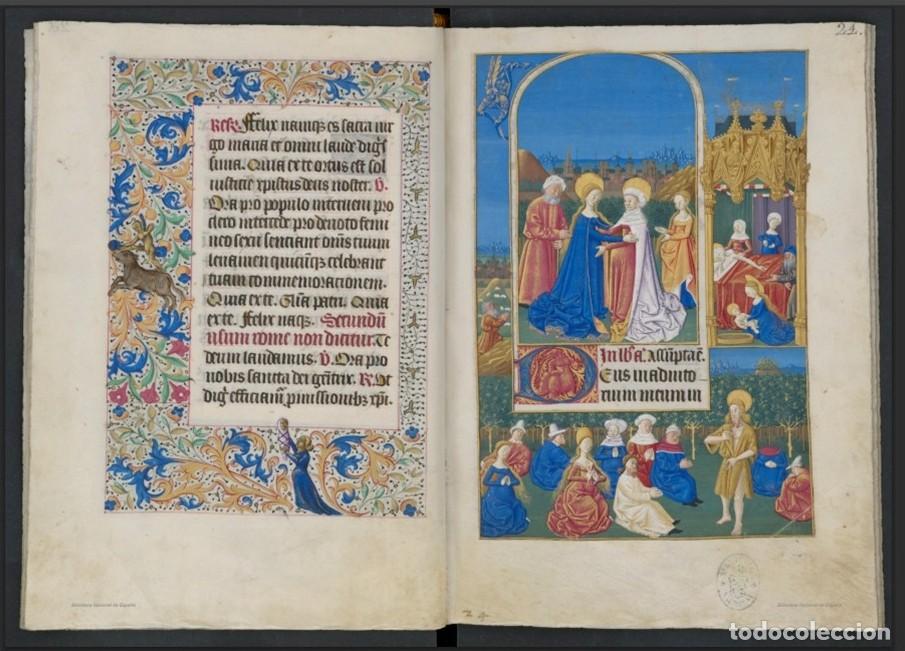 24.
Resp̄. Felix namqȝ es sacra vir
go maria et omni laude digis
sima. Quia ex te ortus est sol
iusticie xpistus deus noster. V̄.
Ora pro populo interueni pro
clero intercede pro deuoto femi
neo sexu sentiant om̄s tuum
leuamen quicūqȝ celebrant
tuam commemorationem.
Quia ex te. Gl̄a patri. Quia
ex te. Felix naqȝ. Secundū
usum rome non dicitur. Te
deum laudamus. V̄. Ora pro
nobis sancta dei geñtrix. R̄. Vt
digī efficiam̄ p̱missionibȝ xp̄i.
Eus in adiuto
rium meum in
24
Biblioteca Nacional de España
Biblioteca Nacional de España
todocoleccion